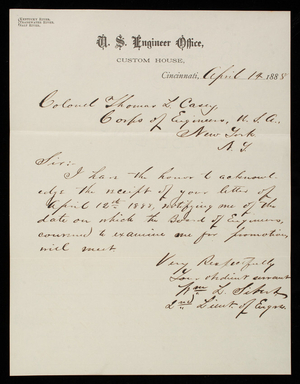 KENTUCKY RIVER.
TRADEWATER RIVER.
SALT RIVER.
U. S. Engineer Office,
CUSTOM HOUSE,
Cincinnati, April 14 1888
Colonel Thomas L. Casey
Corps of Engineers, U.S.A.,
New York
N.Y.
Sir:
I have the honor to acknowl
edge the receipt of your letter of
April 12th 1888, notifying me of the
date on which the Board of Engineers,
convened to examine me for promotion,
will meet
Very Respectfully
Your obedient servant
Wm L. Sibert
2nd Lieut. of Engrs.